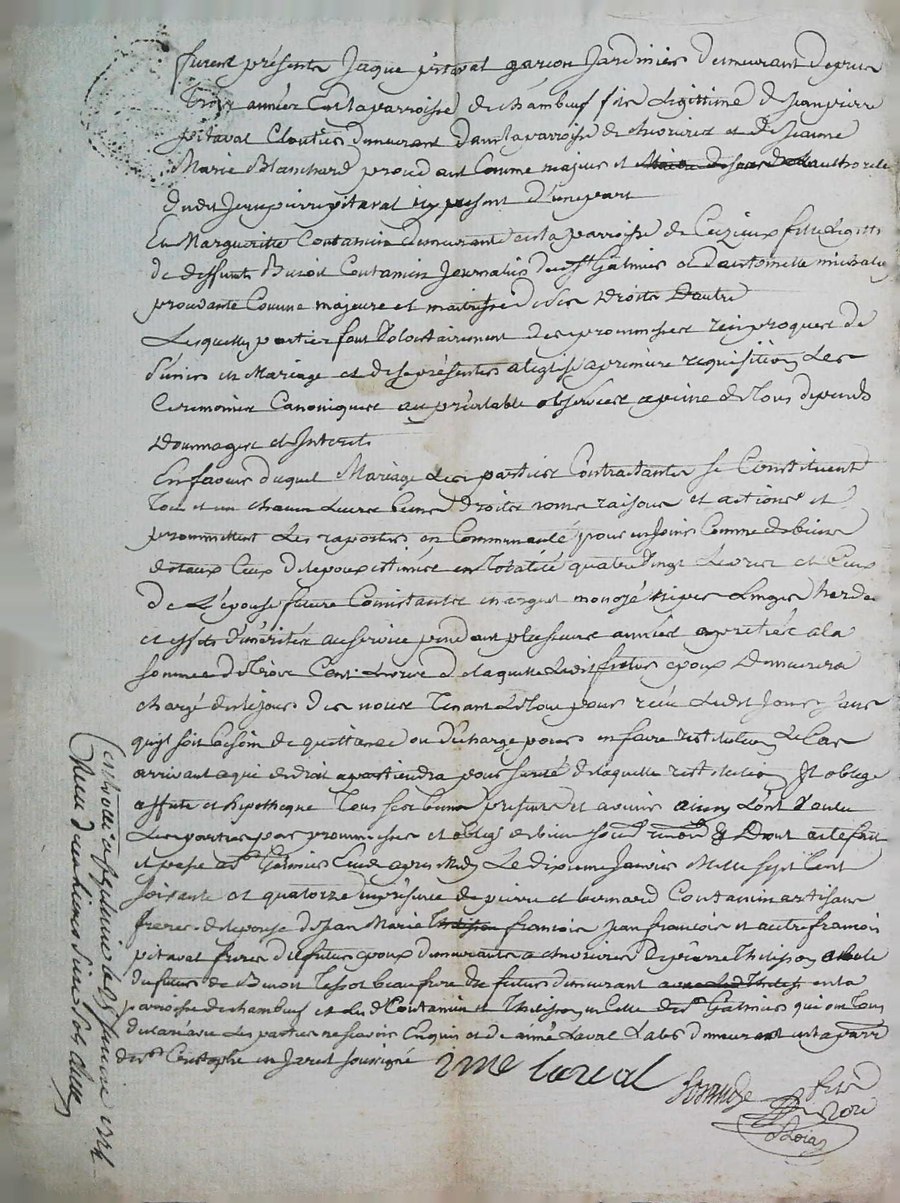 furent présents Jaque pitaval garcon Jardinier demeurant depuis
trois années en la parroisse de chambeuf fils Legittime de Jean pierre
pitaval Cloutier demeurant dans la parroisse de chevrieres et de Jeanne
Marie Blanchard procedant Comme majeur et de l'authorité
dudit Jean pierre pitaval icy present d'une part
Et Margueritte Contamin demeurante en la parroisse de Cuzieux fille Legitt
de deffunts Benoit Contamin Journalier de St Galmier et d'antoinette
procedante Comme majeure et maitresse de ses Droits D'autre
Lesquelles parties font Volontairement des promesses reciproques de
S'unir en Mariage et de se présenter a l'eglise a premiere requisition Les
Ceremonies Canoniques au préalable observées a peine de tous depends
Dommages et Interets
En faveur duquel Mariage Les parties Contractantes se Constituent
Tous et un chacun Leurs biens Droits noms raisons et actions et
promettent Les raporter en Communauté pour en Jouir Comme de biens
dotaux Ceux de l'epoux estimés en Totalité quatre vingt Livres et Ceux
De L'épouse future Consistants en argent monoyé nipes Linges hardes
et effets d'inérités au service pendant plusieurs années apretiés a la
somme de Trois Cent Livres de laquelle Ledit futur epoux Demeurera
chargé dès le jour des noces Tenant Le Tout pour reçu Ledit Jour sans
qu'il soit besoin de quittance ou décharge pour en faire restitution Le Cas
arrivant a qui de droit apartiendra pour sureté de laquelle restitution Il oblige
affecte et hipotheque Tous ses biens presents et avenir ainsy L'ont Voulu
Les parties par promesses et oblig de biens Dont acte fait
et passé a St Galmier Etude apres Midy Le dixieme Janvier Mille Sept Cent
soixante et quatorze en présence de pierre et bernard Contamin artisans
freres de l'epouse de Jean Marie francois Jean francois et autre francois
pitaval freres du futur epoux demeurants a chevrieres de pierre Thilisson
du futur de Benoit Tessot beaufrere du futur demeurant en la
parroisse de chambeuf et Led Contamin et Thilisson en Celle de St Galmier qui ont Tous
declaré avec Les parties ne scavoir Enquis et de aimé Laval Labr demeurant en la parr
de St Cristophe en Jarest soussigné
ime laval
Controllé a St galmier le 23 janvier 1774